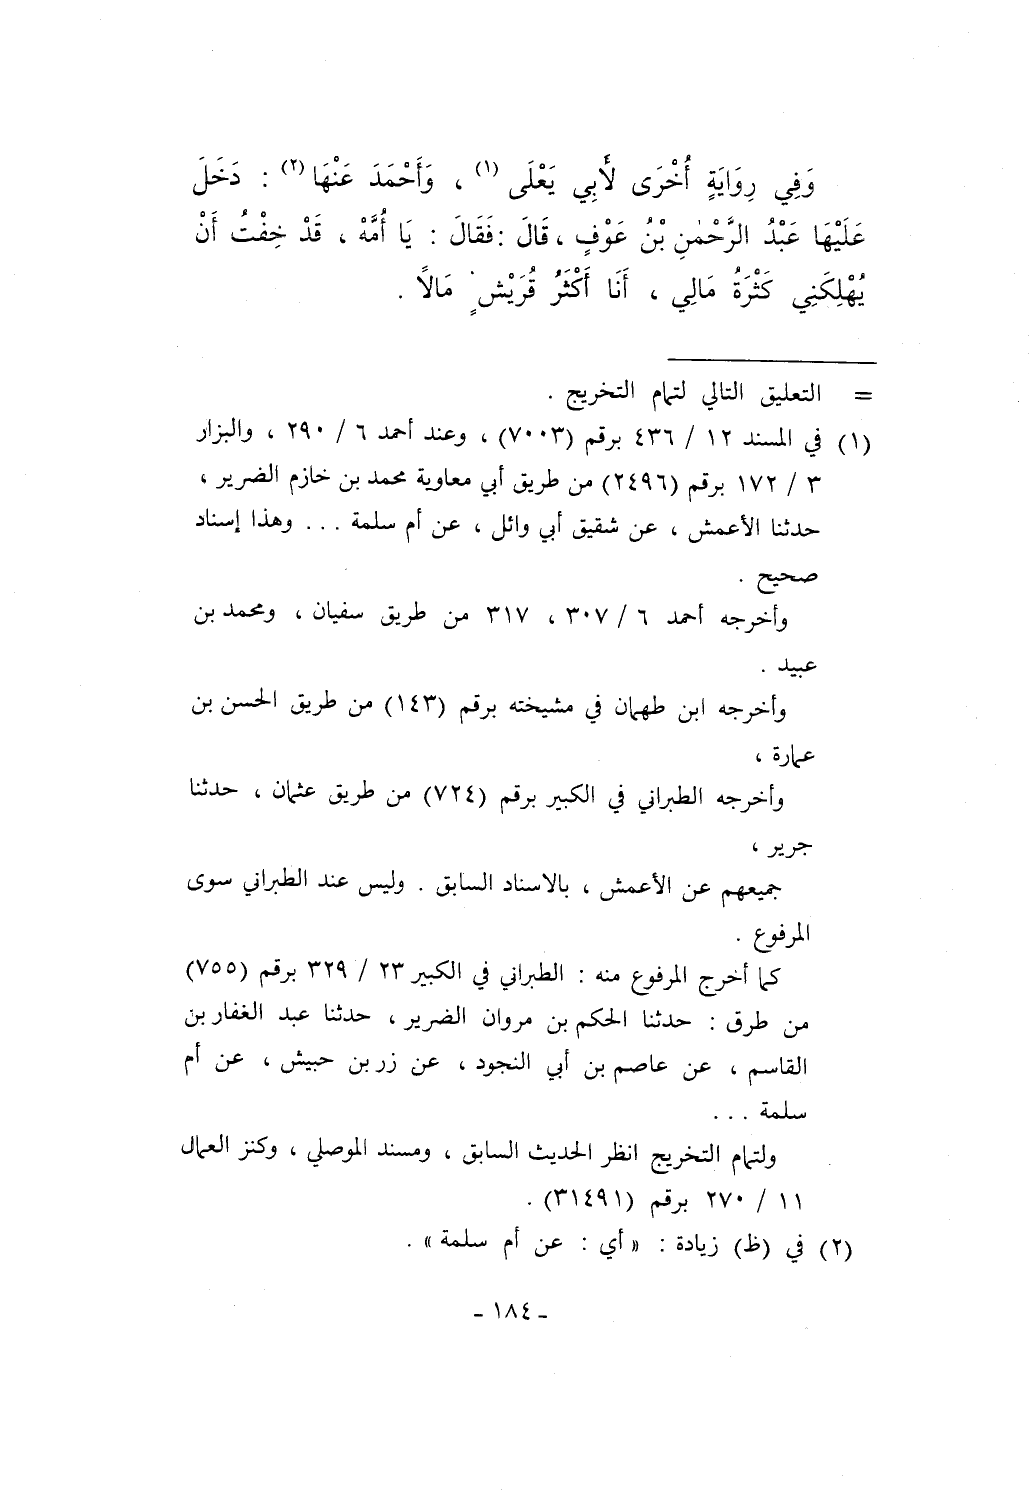 وَفِي رِوَايَةٍ أُخْرَى لأَبِي يَعْلَى (١) ، وَأَحْمَدَ عَنْهَا (٢) : دَخَلَ
عَلَيْهَا عَبْدُ الرَّحْمٰنِ بْنُ عَوْفٍ ، قَالَ : فَقَالَ : يَا أُمَّهْ ، قَدْ خِفْتُ أَنْ
يُهْلِكَنِي كَثْرَةُ مَالِي ، أَنَا أَكْثَرُ قُرَيْشٍ مَالاً .
= التعليق التالي لتمام التخريج .
(١) في المسند ١٢ / ٤٣٦ برقم (٧٠٠٣) ، وعند أحمد ٦ / ٢٩٠ ، والبزار
٣ / ١٧٢ برقم (٢٤٩٦) من طريق أبي معاوية محمد بن خازم الضرير ،
حدثنا الأعمش ، عن شقيق أبي وائل ، عن أم سلمة ... وهذا إسناد
صحيح .
وأخرجه أحمد ٦ / ٣٠٧ ، ٣١٧ من طريق سفيان ، ومحمد بن
عبيد .
وأخرجه ابن طهمان في مشيخته برقم (١٤٣) من طريق الحسن بن
عمارة ،
وأخرجه الطبراني في الكبير برقم (٧٢٤) من طريق عثمان ، حدثنا
جرير ،
جميعهم عن الأعمش ، بالاسناد السابق . وليس عند الطبراني سوى
المرفوع .
كما أخرج المرفوع منه : الطبراني في الكبير ٢٣ / ٣٢٩ برقم (٧٥٥)
من طرق : حدثنا الحكم بن مروان الضرير ، حدثنا عبد الغفار بن
القاسم ، عن عاصم بن أبي النجود ، عن زر بن حبيش ، عن أم
سلمة ...
ولتمام التخريج انظر الحديث السابق ، ومسند الموصلي ، وكنز العمال
١١ / ٢٧٠ برقم (٣١٤٩١) .
(٢) في (ظ) زيادة : « أي : عن أم سلمة » .
- ١٨٤ -